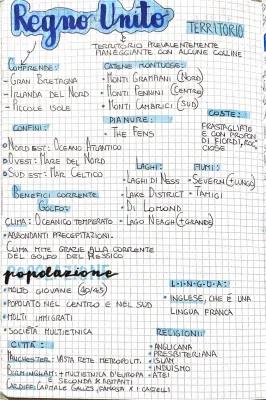 Regno Unito
TERRITORIO
TERRITORIO PREVALENTEMENTE
PIANEGGIANTE CON ALCUNE COLLINE
COMPRENDE:
- GRAN BRETAGNA
- IRLANDA DEL NORD
- PICCOLE ISOLE
CATENE MONTUOSE:
- MONTI GRAMPIANI (NORD)
- MONTI PENNINI (CENTRO)
- MONTI CAMBRICI (SUD)
PIANURE:
- THE FENS
COSTE:
FRASTAGLIATE
E CON PROFON
DI FIORDI,
CONFINI:
NORD EST: OCEANO ATLANTICO
OVEST: MARE DEL NORD
SUD EST: MAR CELTICO
LAGHI:
- LAGHI DI NESS
- LAKE DISTRICT
- DI LOMOND
- LAGO NEAGH (+GRANDE)
FIUMI:
- SEVERN (+LUNGO)
- TAMIGI
BENEFICI CORRENTE
GOLFO:
CLIMA: OCEANICO TEMPERATO
• ABBONDANTI PRECIPITAZIONI.
CLIMA MITE GRAZIE ALLA CORRENTE
DEL GOLFO DEL MESSICO
popolazione
• MOLTO GIOVANE (40/45)
• POPOLATO NEL CENTRO E NEL SUD
• MOLTI IMMIGRATI
• SOCIETÀ MULTIETNICA
LINGUA:
• INGLESE, CHE È UNA
LINGUA FRANCA
RELIGIONI:
• ANGLICANA
• PRESBITERIANA
• ISLAM
• INDUISMO
• ATEI
CITTÀ:
MANCHESTER: VASTA RETE METROPOLIT.
BIRMINGHAM: + MULTIETNICA D'EUROPA
E SECONDA X ABITANTI
CARDIFF: CAPITALE GALLES, FAMOSA X I CASTELLI